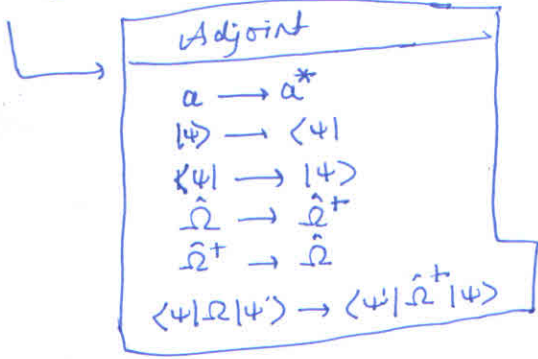 Adjoint
a → a*
|ψ⟩ → ⟨ψ|
⟨ψ| → |ψ⟩
Ω̂ → Ω̂⁺
Ω̂⁺ → Ω̂
⟨ψ|Ω|ψ'⟩ → ⟨ψ'|Ω̂⁺|ψ⟩